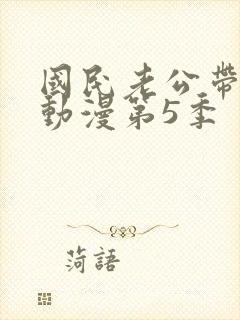 國民老公帶
動漫第5季
菏語